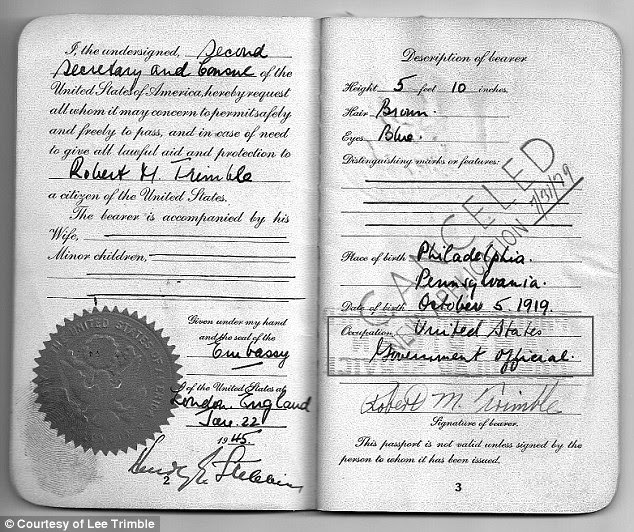 I, the undersigned, Second
Secretary and Consul of the
United States of America, hereby request
all whom it may concern to permit safely
and freely to pass, and in case of need
to give all lawful aid and protection to
Robert M Trimble
a citizen of the United States.
The bearer is accompanied by his
Wife,
Minor children,
Given under my hand
and the seal of the
Embassy
of the United States at
London, England
Jan. 22
1945.
2
Description of bearer
Height 5 feet 10 inches.
Hair Brown.
Eyes Blue.
Distinguishing marks or features:
CANCELED
NEW APPLICATION 7/31/79
Place of birth Philadelphia.
Pennsylvania.
Date of birth October 5. 1919.
Occupation United States
Government Official.
Robert M. Trimble
Signature of bearer.
This passport is not valid unless signed by the
person to whom it has been issued.
3
© Courtesy of Lee Trimble